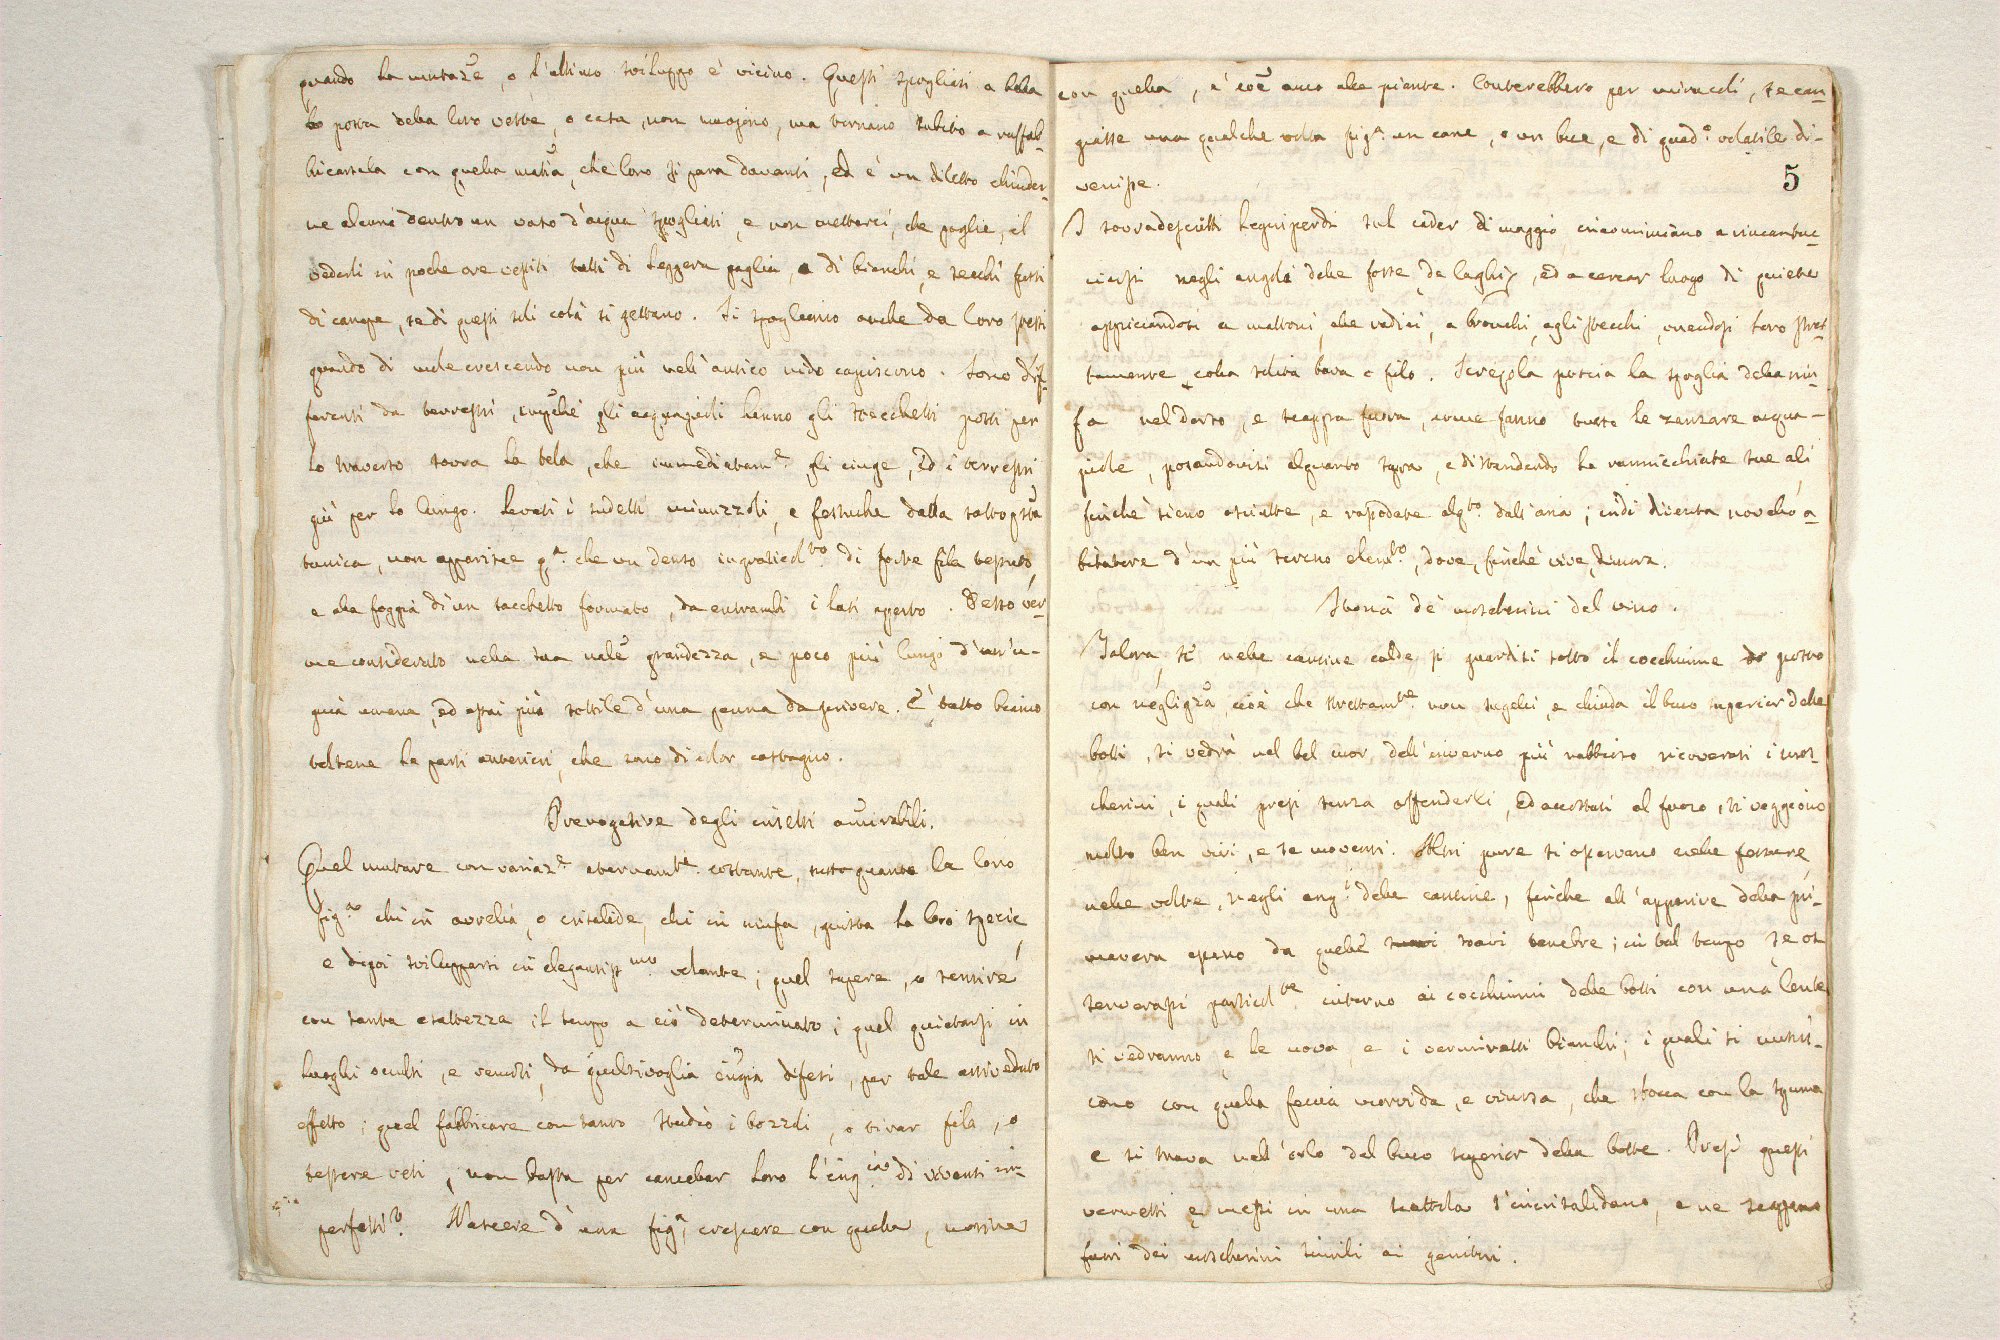 quando la mutaz.e, o l'ultimo sviluppo è vicino. Questi spogliati a bella
posta della loro veste, o casa, non muojono, ma tornano subito a raffab-
bricarsela con quella mat.a, che loro si para davanti, ed è un diletto chiuder-
ne alcuni dentro un vaso d'acqua spogliati, e non mettervi, che paglie, il
vederli in poche ore vestiti tutti di leggera paglia, o di bianchi, e secchi fusti
di canape, se di questi soli colà si gettano. Si spogliano anche da loro stessi
quando di mole crescendo non più nell'antico nido capiscono. Sono dif-
ferenti da terrestri, gli acquajoli hanno gli stecchetti posti per
lo traverso sovra la tela, che immediatam.e gli cinge, ed i terrestri
giù per lo lungo. Levati i sudetti minuzzoli, e festuche dalla sottoposta
tonica, non apparisce q.a che un denso ingraticol.to di forte fila tessuto,
e alla foggia di un sacchetto formato, da entrambi i lati aperto. Detto ver-
me considerato nella sua nale grandezza, e poco più lungo d'un'un-
ghia umana, ed assai più sottile d'una penna da scrivere. È tutto bianco
toltene le parti anteriori, che sono di color castagno.
Prerogative degli insetti amirabili.
Quel mutare con variaz.e eternam.te costante, tutta quanta la loro
fig.a chi in aurelia, o crisalide, chi in ninfa, giusta la loro spezie,
e dipoi svilupparsi in elegantiss.mo volante; quel sapere, o sentire
con tanta esattezza il tempo a ciò determinato; quel quietarsi in
luoghi occulti, e remoti, da qualsivoglia ingia difesi, per tale antiveduto
effetto; quel fabbricare con tanto studio i bozzoli, o tirar fila, o
tessere veli, non basta per cancellar loro l'ing. di viventi im-
perfetti? Nascere d'una fig.a, crescere con quella, morire
con quella, è cōe anco alle piante. Conterebbero per miracoli, se can-
giasse una qualche volta fig.a un cane, o un bue, e di quad.o volatile di-
venisse.
5
I sovradescritti leguiperdi sul cader di maggio incominciano a rincantuc-
ciarsi negli angoli delle fosse, de laghi, ed a cercar luogo di quiete
appiccandosi a mattoni, alle radici, a bronchi, agli stecchi, unendosi loro stret-
tamente colla solita bava o filo. Screpola poscia la spoglia della nin-
fa nel dorso, e scappa fuora, come fanno tutte le zanzare acqua-
jole, posandovisi alquanto sopra, e distendendo le rannicchiate sue ali
finchè sieno asciutte, e rasodate alq.to dall'aria; indi diventa novello a-
bitatore d'un più sereno elem.to, dove, finchè vive, dimora.
Storia de' moscherini del vino.
Talora, se nelle cantine calde si guardisi sotto il cocchiume posto
con negligza, cioè che strettam.te non sugelli, e chiuda il buco superior delle
botti, si vedrà nel bel cuor dell'inverno più rabbioso ricoverati i mos-
cherini, i quali presi senza offenderli, ed accostati al fuoco, si veggiono
molto ben vivi, e se moventi. Altri pure si osservano nelle fessure,
nelle volte, negli ang.i delle cantine, finchè all'apparire della pri-
mavera escono da quelle soavi tenebre; in tal tempo se os-
serverassi particol.te intorno ai cocchiumi delle botti con una lente
si vedranno, e le uova, e i vermicelli bianchi; i quali si nutris-
cono con quella feccia morvida, e vinosa, che sbocca con la spuma
e si trova nell'orlo del buco superior della botte. Presi questi
vermetti e messi in una scattola s'incrisalidano, e ne scappano
fuori dei moscherini simili ai genitori.